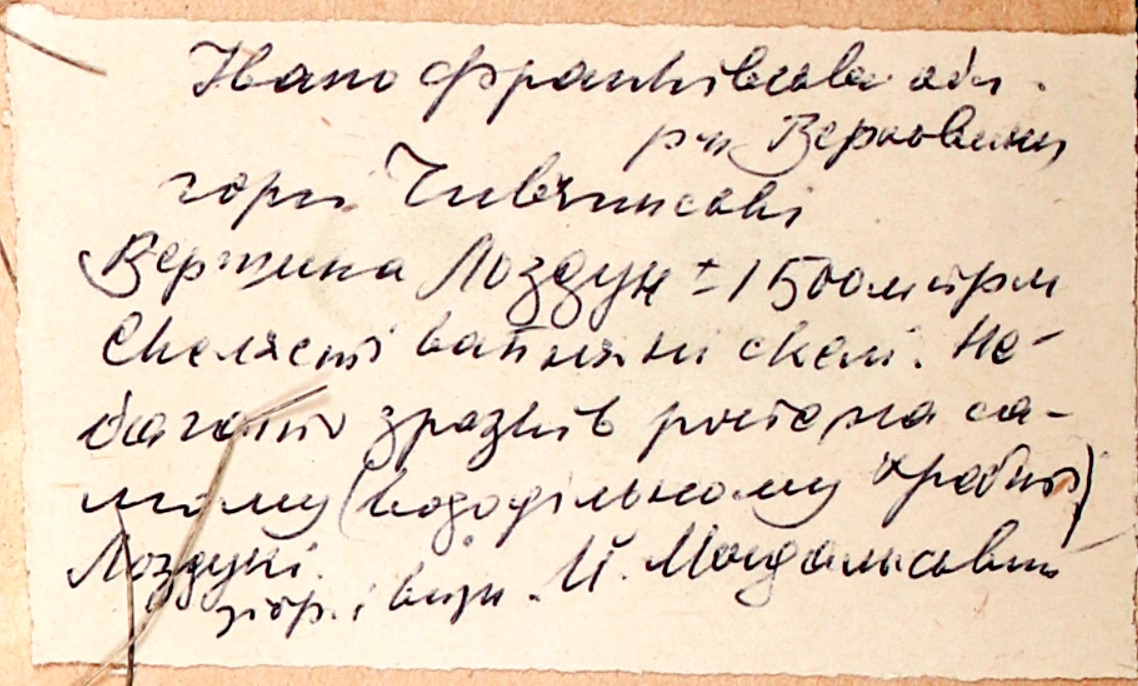 Івано Франківська обл.
р-н Верховина
гори Чивчинські
Вершина Лоздун ± 1500 метрм
Скелясті вапнякні скелі. Не-
багато зразків росте на са-
мому (вододільному хребті)
Лоздуні.
зібр. і визн. Й. Мандалысовий